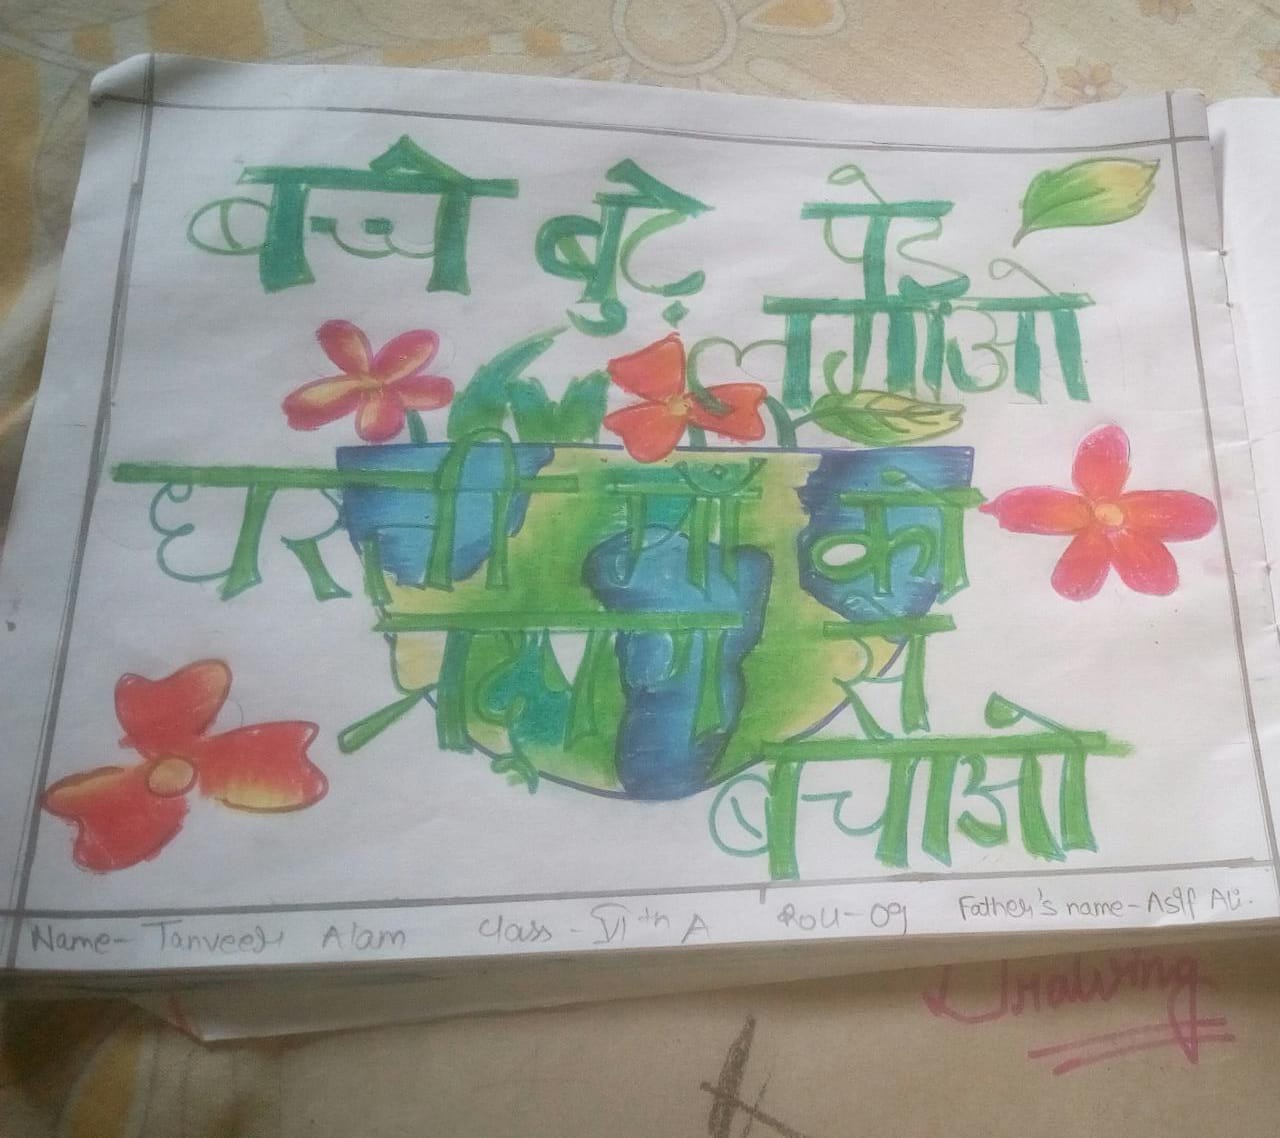 बच्चे बुटे़ पेड़
लगाओ
धरती माँ को
प्रदूषण से
बचाओ
Name- Tanveer Alam Class- VIth A Roll-09 Father's name- Asif Ali.
Drawing